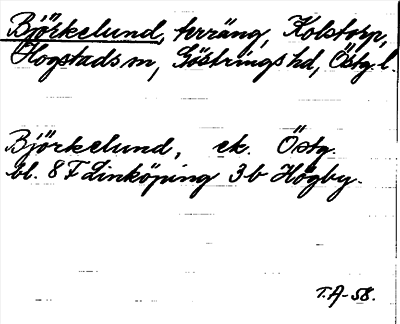 Björkelund, terräng, Kolstorp,
Hogstads sn, Göstrings hd, Östg. l.
Björkelund, ek. Östg.
bl. 8 F Linköping 3 b Högby.
T.A-58.